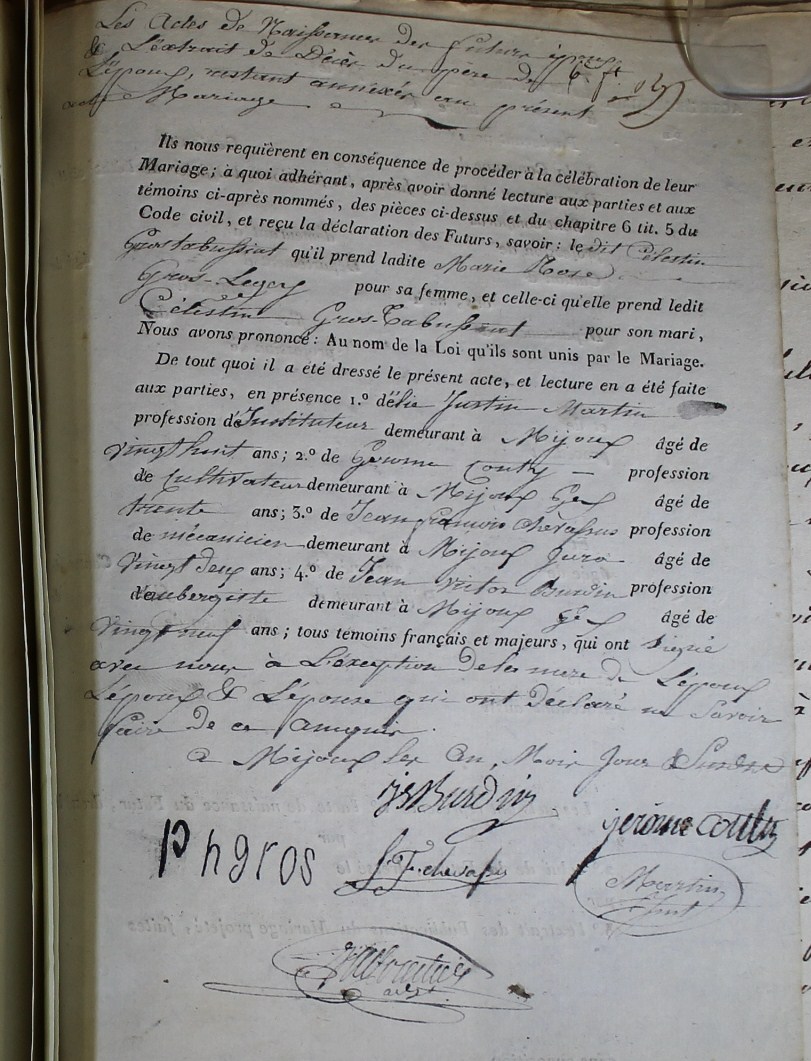 Les Actes de Naissances des futurs époux
& L'extrait de Décès du père de
L'époux, restant annexés au présent
acte Mariage
Ils nous requièrent en conséquence de procéder à la célébration de leur
Mariage; à quoi adhérant, après avoir donné lecture aux parties et aux
témoins ci-après nommés, des pièces ci-dessus et du chapitre 6 tit. 5 du
Code civil, et reçu la déclaration des Futurs, savoir: le dit Célestin
Grostabussiat qu'il prend ladite Marie Rose
Gros-Legery pour sa femme, et celle-ci qu'elle prend ledit
Célestin Gros-Tabussiat pour son mari,
Nous avons prononcé: Au nom de la Loi qu'ils sont unis par le Mariage.
De tout quoi il a été dressé le présent acte, et lecture en a été faite
aux parties, en présence 1.º de Justin Martin
profession d'Instituteur demeurant à Mijoux âgé de
vingt huit ans; 2.º de Gerome Couty profession
de Cultivateur demeurant à Mijoux Gex âgé de
trente ans; 3.º de Jean françois Chevassus profession
de mécanicien demeurant à Mijoux Jura âgé de
vingt deux ans; 4.º de Jean Victor Burdin profession
d'aubergiste demeurant à Mijoux Gex âgé de
vingt neuf ans; tous témoins français et majeurs, qui ont signé
avec nous à L'éxeption de la mere de L'époux
L'époux & L'épouse qui ont déclaré ne Savoir
faire de ce Enquis.
a Mijoux les An, Mois Jour & Susdits
Burdin
jerome Couty
Phgros
J F chevassus
Martin
Inst